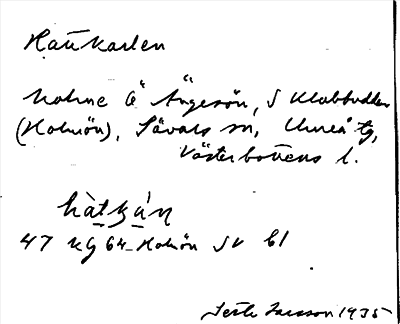 Hattkarlen
holme ö Ängesön, S Klabbudden
(Holmön), Sävars sn, Umeå tg,
Västerbottens l.
hàtkáɳ
47 KG 64 Holmön SV bl
Larsson 1935